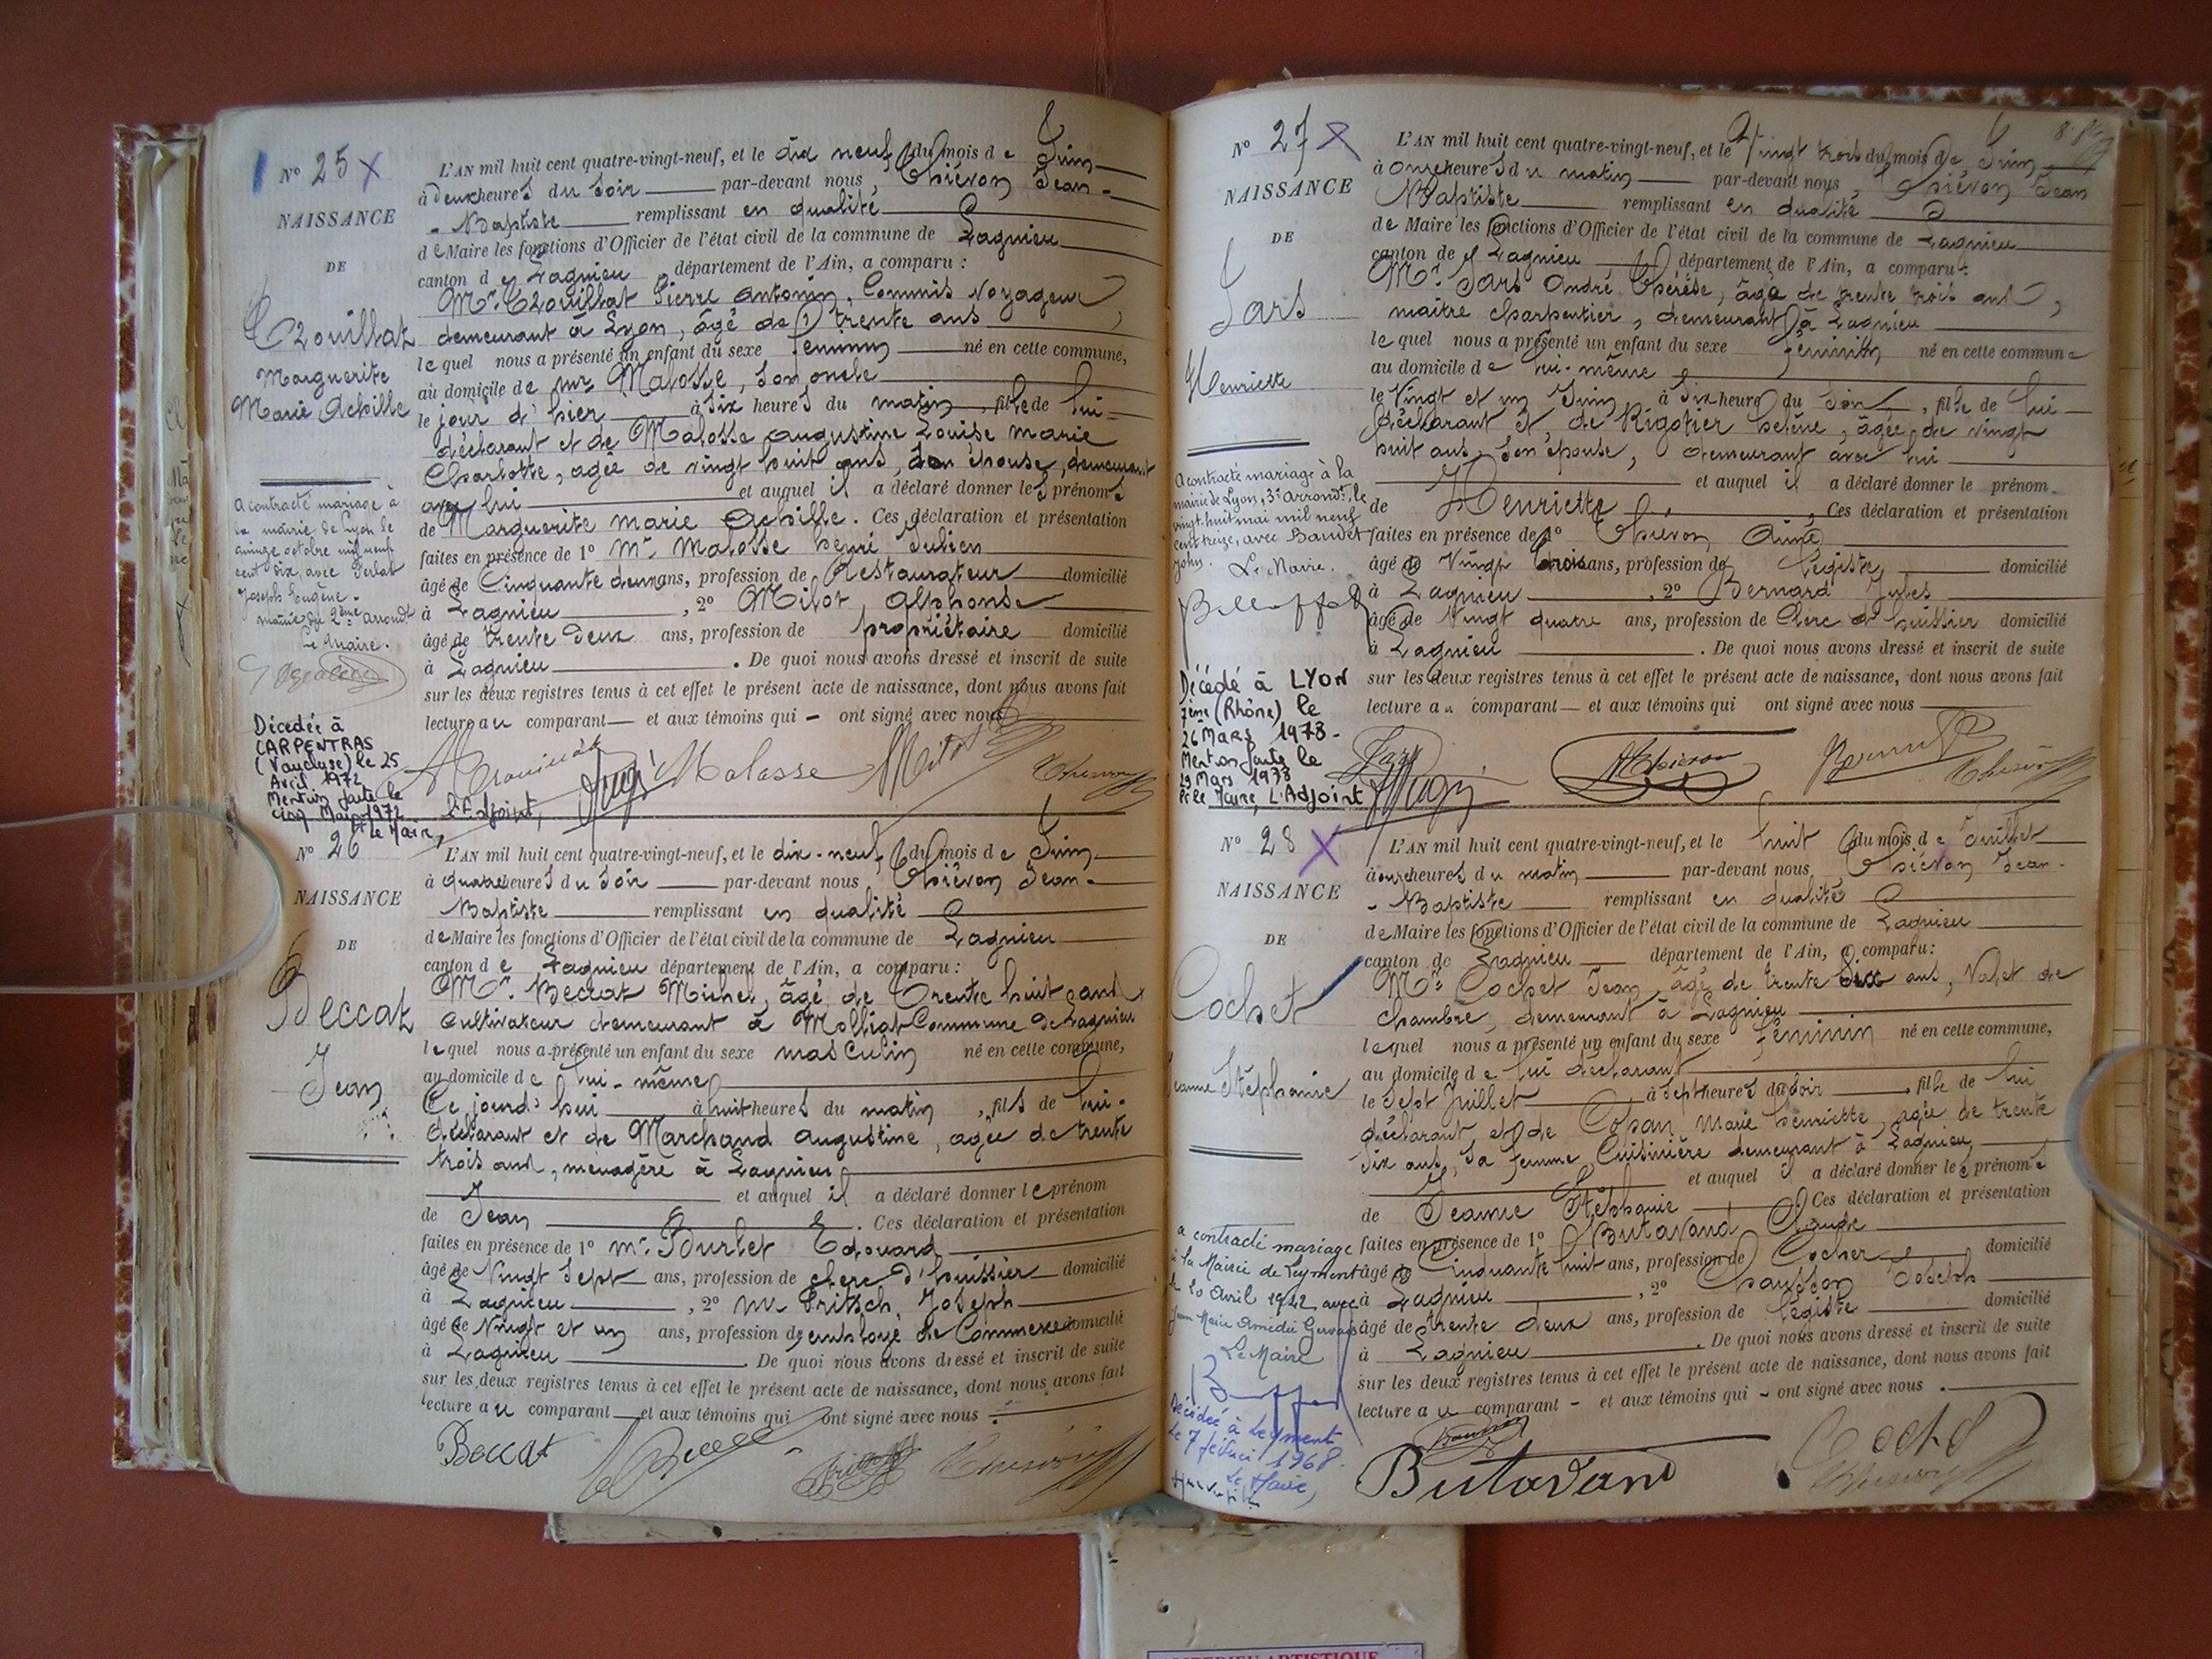 N° 25 X
NAISSANCE
DE
Crouillat
Marguerite
Marie Achille
A contracté mariage à
la mairie de Lyon le
quinze octobre mil neuf
cent dix, avec
Joseph Eugène.
mairie du 2ème arrondt
Le Maire.
Décédée à
CARPENTRAS
(Vaucluse) le 25
Avril 1972
Mention faite le
cinq Mai 1972
Pr le Maire,
L'AN mil huit cent quatre-vingt-neuf, et le dix neuf du mois de Juin
à deux heures du soir par-devant nous, Thiévon Jean-
-Baptiste remplissant en qualité
de Maire les fonctions d'Officier de l'état civil de la commune de Lagnieu
canton de Lagnieu département de l'Ain, a comparu :
Mr Crouillat Pierre Antonin, Commis Voyageur,
demeurant à Lyon, âgé de trente ans
lequel nous a présenté un enfant du sexe féminin né en cette commune,
au domicile de mr Malosse, son oncle
le jour d'hier à six heures du matin, fille de lui-
déclarant et de Malosse Augustine Louise Marie
Charlotte, agée de vingt huit ans, son épouse, demeurant
avec lui et auquel il a déclaré donner les prénoms
de Marguerite Marie Achille. Ces déclaration et présentation
faites en présence de 1° Mr Malosse Henri Julien
âgé de Cinquante deux ans, profession de Restaurateur domicilié
à Lagnieu, 2° Milot, Alphonse
âgé de trente deux ans, profession de propriétaire domicilié
à Lagnieu. De quoi nous avons dressé et inscrit de suite
sur les deux registres tenus à cet effet le présent acte de naissance, dont nous avons fait
lecture au comparant et aux témoins qui - ont signé avec nous
Malosse
L'Adjoint,
N° 26
NAISSANCE
DE
Beccat
Jean
L'AN mil huit cent quatre-vingt-neuf, et le dix-neuf du mois de Juin
à quatre heures du soir par-devant nous Thiévon Jean-
Baptiste remplissant en qualité
de Maire les fonctions d'Officier de l'état civil de la commune de Lagnieu
canton de Lagnieu département de l'Ain, a comparu :
Mr Beccat Michel, âgé de Trente huit ans
Cultivateur demeurant à Molliat Commune de Lagnieu
lequel nous a présenté un enfant du sexe masculin né en cette commune,
au domicile de lui-même
Ce jourd'hui à huit heures du matin, fils de lui-
déclarant et de Marchand Augustine, agée de trente
trois ans, ménagère à Lagnieu
et auquel il a déclaré donner le prénom
de Jean. Ces déclaration et présentation
faites en présence de 1° mr Burlet Edouard
âgé de Vingt sept ans, profession de clerc d'huissier domicilié
à Lagnieu, 2° mr Fritsch, Joseph
âgé de Vingt et un ans, profession de employé de Commerce domicilié
à Lagnieu. De quoi nous avons dressé et inscrit de suite
sur les deux registres tenus à cet effet le présent acte de naissance, dont nous avons fait
lecture au comparant et aux témoins qui ont signé avec nous.
Beccat
N° 27 X
NAISSANCE
DE
Jars
Henriette
A contracté mariage à la
mairie de Lyon, 3e Arrondt, le
vingt-huit mai mil neuf
cent treize, avec Baudet
John.
Le Maire.
Décédé à LYON
7ème (Rhône) le
26 Mars 1973-
Mention faite le
29 Mars 1973
Pr le Maire, L'Adjoint
L'AN mil huit cent quatre-vingt-neuf, et le Vingt trois du mois de Juin
à onze heures du matin par-devant nous, Thiévon Jean
Baptiste remplissant en qualité
de Maire les fonctions d'Officier de l'état civil de la commune de Lagnieu
canton de Lagnieu département de l'Ain, a comparu :
Mr Jars André Thérèse, âgé de trente trois ans,
maitre charpentier, demeurant à Lagnieu
lequel nous a présenté un enfant du sexe féminin né en cette commune
au domicile de lui-même
le Vingt et un Juin à six heures du soir, fille de lui
déclarant et de Rigotier Hélène, âgée de vingt
huit ans, son épouse, demeurant avec lui
et auquel il a déclaré donner le prénom
de Henriette, Ces déclaration et présentation
faites en présence de 1° Thiévon Aimé
âgé de Vingt trois ans, profession de légiste domicilié
à Lagnieu, 2° Bernard Jules
âgé de Vingt quatre ans, profession de Clerc d'huissier domicilié
à Lagnieu. De quoi nous avons dressé et inscrit de suite
sur les deux registres tenus à cet effet le présent acte de naissance, dont nous avons fait
lecture au comparant et aux témoins qui ont signé avec nous
Jars
Thiévon
N° 28 X
NAISSANCE
DE
Cochet
Jeanne Stéphanie
a contracté mariage
à la Mairie de Leyment
le 20 Avril 1922 avec
Jean Marie Amédée Gervais
Le Maire
Décédée à Leyment
le 7 février 1968.
Le Maire,
L'AN mil huit cent quatre-vingt-neuf, et le huit du mois de Juillet
à onze heures du matin par-devant nous Thiévon Jean-
-Baptiste remplissant en qualité
de Maire les fonctions d'Officier de l'état civil de la commune de Lagnieu
canton de Lagnieu département de l'Ain, a comparu :
Mr Cochet Jean, âgé de trente six ans, Valet de
chambre, demeurant à Lagnieu
lequel nous a présenté un enfant du sexe féminin né en cette commune,
au domicile de lui déclarant
le sept Juillet à sept heures du soir, fille de lui
déclarant, et de Cosan Marie Henriette, agée de trente
six ans, sa femme Cuisinière demeurant à Lagnieu
et auquel il a déclaré donner les prénoms
de Jeanne Stéphanie Ces déclaration et présentation
faites en présence de 1° Butavand Claude
âgé de Cinquante huit ans, profession de Cocher domicilié
à Lagnieu, 2° Chausson Joseph
âgé de trente deux ans, profession de légiste domicilié
à Lagnieu. De quoi nous avons dressé et inscrit de suite
sur les deux registres tenus à cet effet le présent acte de naissance, dont nous avons fait
lecture au comparant - et aux témoins qui - ont signé avec nous.
Butavand
Cochet